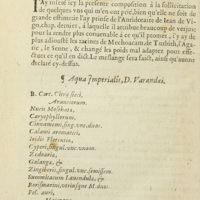 I'ay inseré icy la presente composition à la sollicitation
de quelques vns qui m'en ont prié, bien qu'elle ne soit de
grande efficace au prix de l'Antidotaire de Iean de Vi-
gon, chap. dernier, à laquelle il attribue beaucoup de vertus;
pour rendre celle plus conuenable à ce qu'il promet, i'ay de
plus adiousté les racines de Mechoacam, de Turbith, l'Aga-
ric, le Senne, & changé les poids mal adaptez pour effe-
ctuer ce qu'il en dict. Le meslange sera faict, ainsi qu'auons
declaré cy-dessus.
¶ Aqua Imperialis, D. Varandæi.
℞. Cort. Citri sicci,
Arantiorum.
Nucis Moschatæ,
Caryophyllorum,
Cinnamomi, sing. vnc. duas.
Calami aromatici,
Iridis Florentiæ,
Cyperi, singul. vnc. vnam.
Zedoariæ,
Galangæ, &
Zingiberis, singul. vnc. semissem.
Summitatum Lauendulæ, &
Rorismarini, vtriusque M. duos.
Fol. lauri,